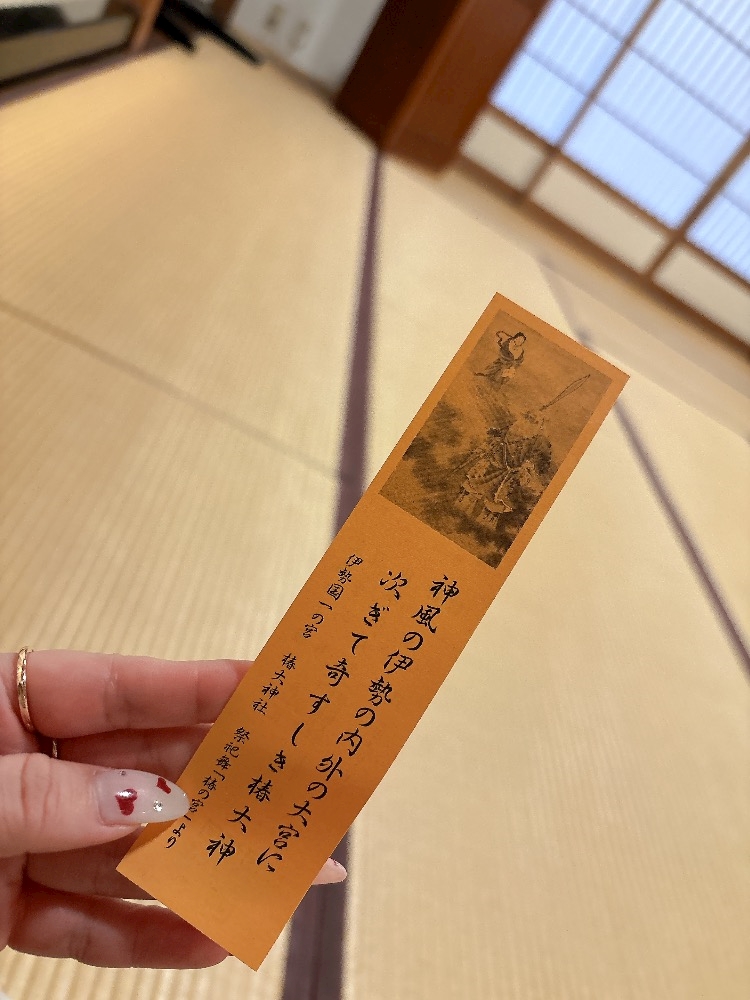 神風の伊勢の内外の大宮に
次ぎて奇すしき椿大神
伊勢国一の宮 椿大神社 祭祀舞「椿の宮」より